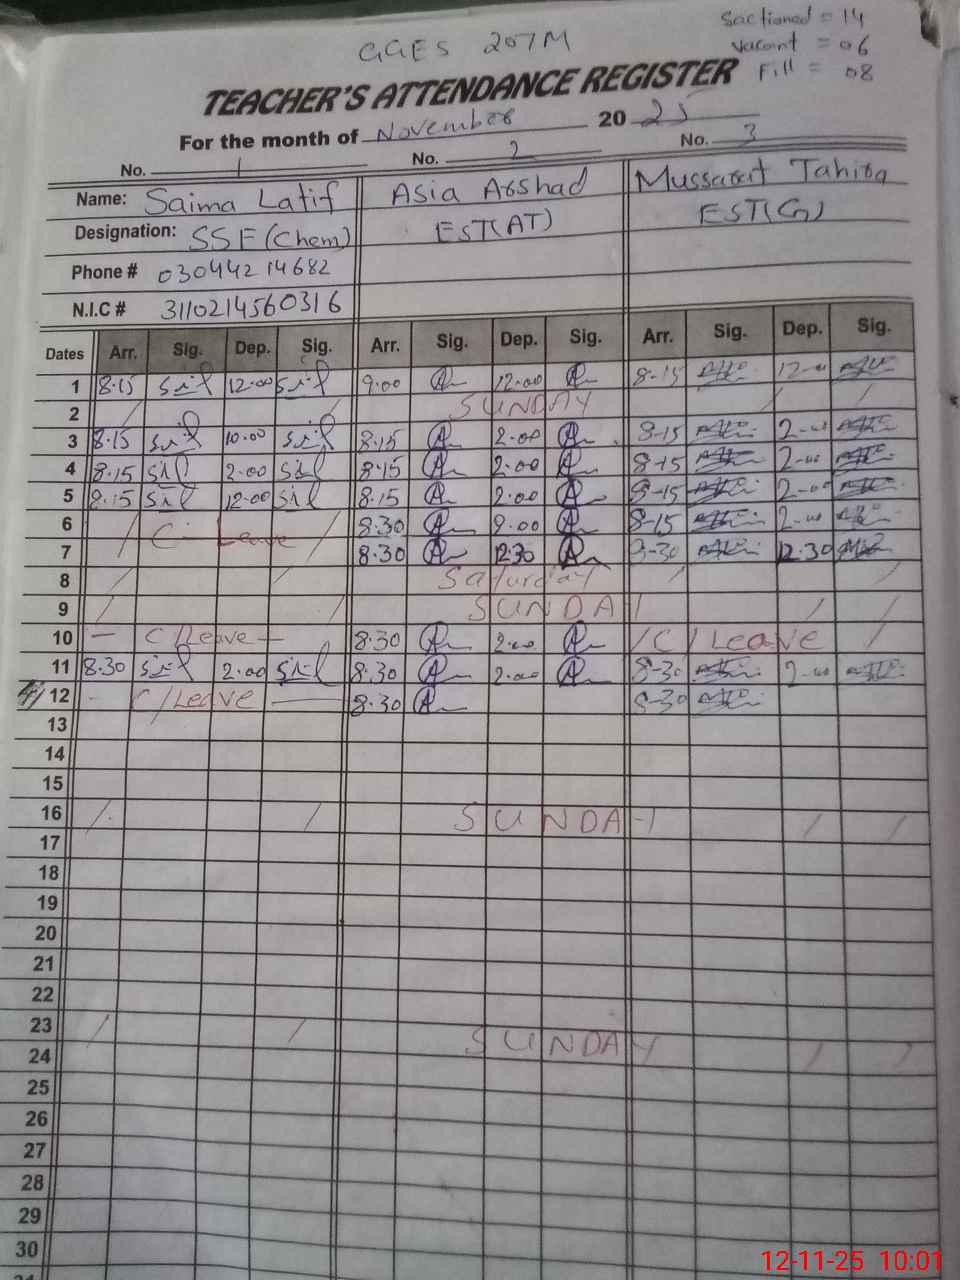 GGES 207M
Sactioned = 14
Vacant = 06
Fill = 08
TEACHER'S ATTENDANCE REGISTER
For the month of November 2025
No. 1 No. 2 No. 3
Name: Saima Latif Asia Arshad Mussarat Tahira
Designation: SSE (Chem) EST(AT) EST(G)
Phone # 03044214682
N.I.C # 3110214560316
Dates Arr. Sig. Dep. Sig. Arr. Sig. Dep. Sig. Arr. Sig. Dep. Sig.
1 8.15 12.00 9.00 12.00 8-15 12-00
2 / / SUNDAY / /
3 8.15 10.00 8.15 2.00 8-15 2-00
4 8.15 2.00 8.15 2.00 8-15 2-00
5 8.15 12.00 8.15 2.00 8-15 2-00
6 / C. Leave / 8.30 2.00 8-15 2-00
7 8.30 12.30 8-30 12.30
8 / / Saturday / /
9 / / SUNDAY / /
10 — C/Leave — 8.30 2.00 / C/Leave /
11 8.30 2.00 8.30 2.00 8-30 2-00
12 - C/Leave — 8.30 8-30
13
14
15
16 / / SUNDAY / /
17
18
19
20
21
22
23 / / SUNDAY / /
24
25
26
27
28
29
30
12-11-25 10:01